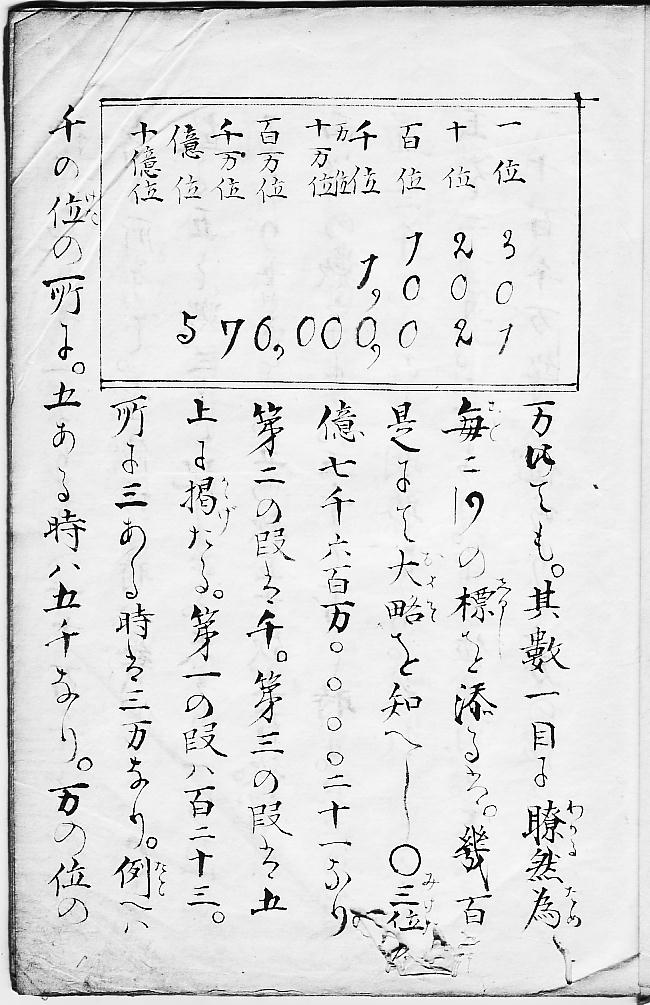 千の位の所に。五ある時ハ五千なり。万の位の
所に三ある時は三万なり。例へハ
上に掲たる。第一の段ハ百二十三。
第二の段は千。第三の段は五
億七千六百万〇〇〇〇二十一なり
是にて大略を知へし〇三位
毎ニ,の標を添るは。幾百
万にても。其數一目に瞭然為
十億位
億位
千万位
百万位
十万位
万位
千位
百位
十位
一位
123
1,000
576,000,021